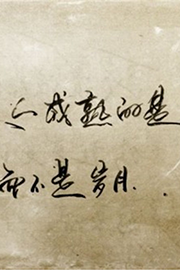 人成熟的是
而不是岁月..